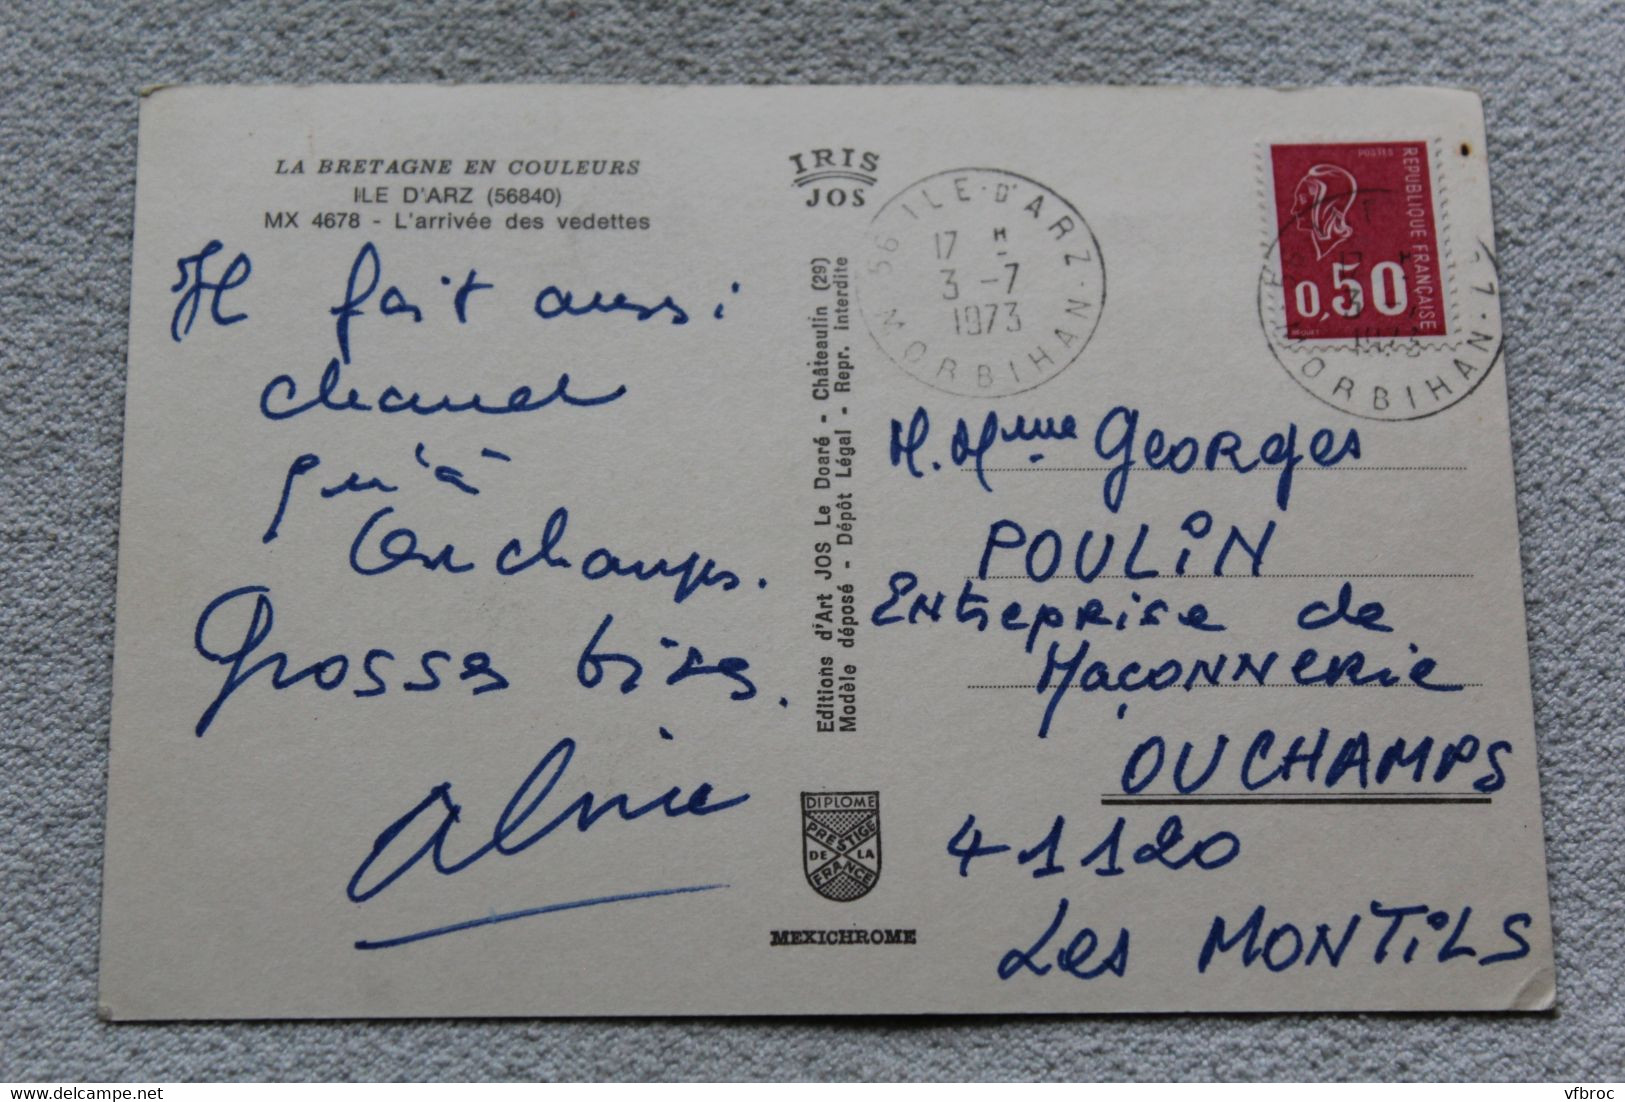 LA BRETAGNE EN COULEURS
ILE D'ARZ (56840)
MX 4678 - L'arrivée des vedettes
Il fait aussi
chaud
qu'à
Ouchamps.
Grosses bises.
IRIS
JOS
Editions d'Art JOS Le Doaré - Châteaulin (29)
Modèle déposé - Dépôt Légal - Repr. interdite
DIPLOME
PRESTIGE
DE LA
FRANCE
MEXICHROME
56 ILE-D'ARZ
17 H
3 -7
1973
MORBIHAN
POSTES
REPUBLIQUE FRANÇAISE
0,50
BEQUET
MORBIHAN
M. Mme Georges
POULIN
Entreprise de
Maçonnerie
OUCHAMPS
41120
Les MONTILS
vfbroc